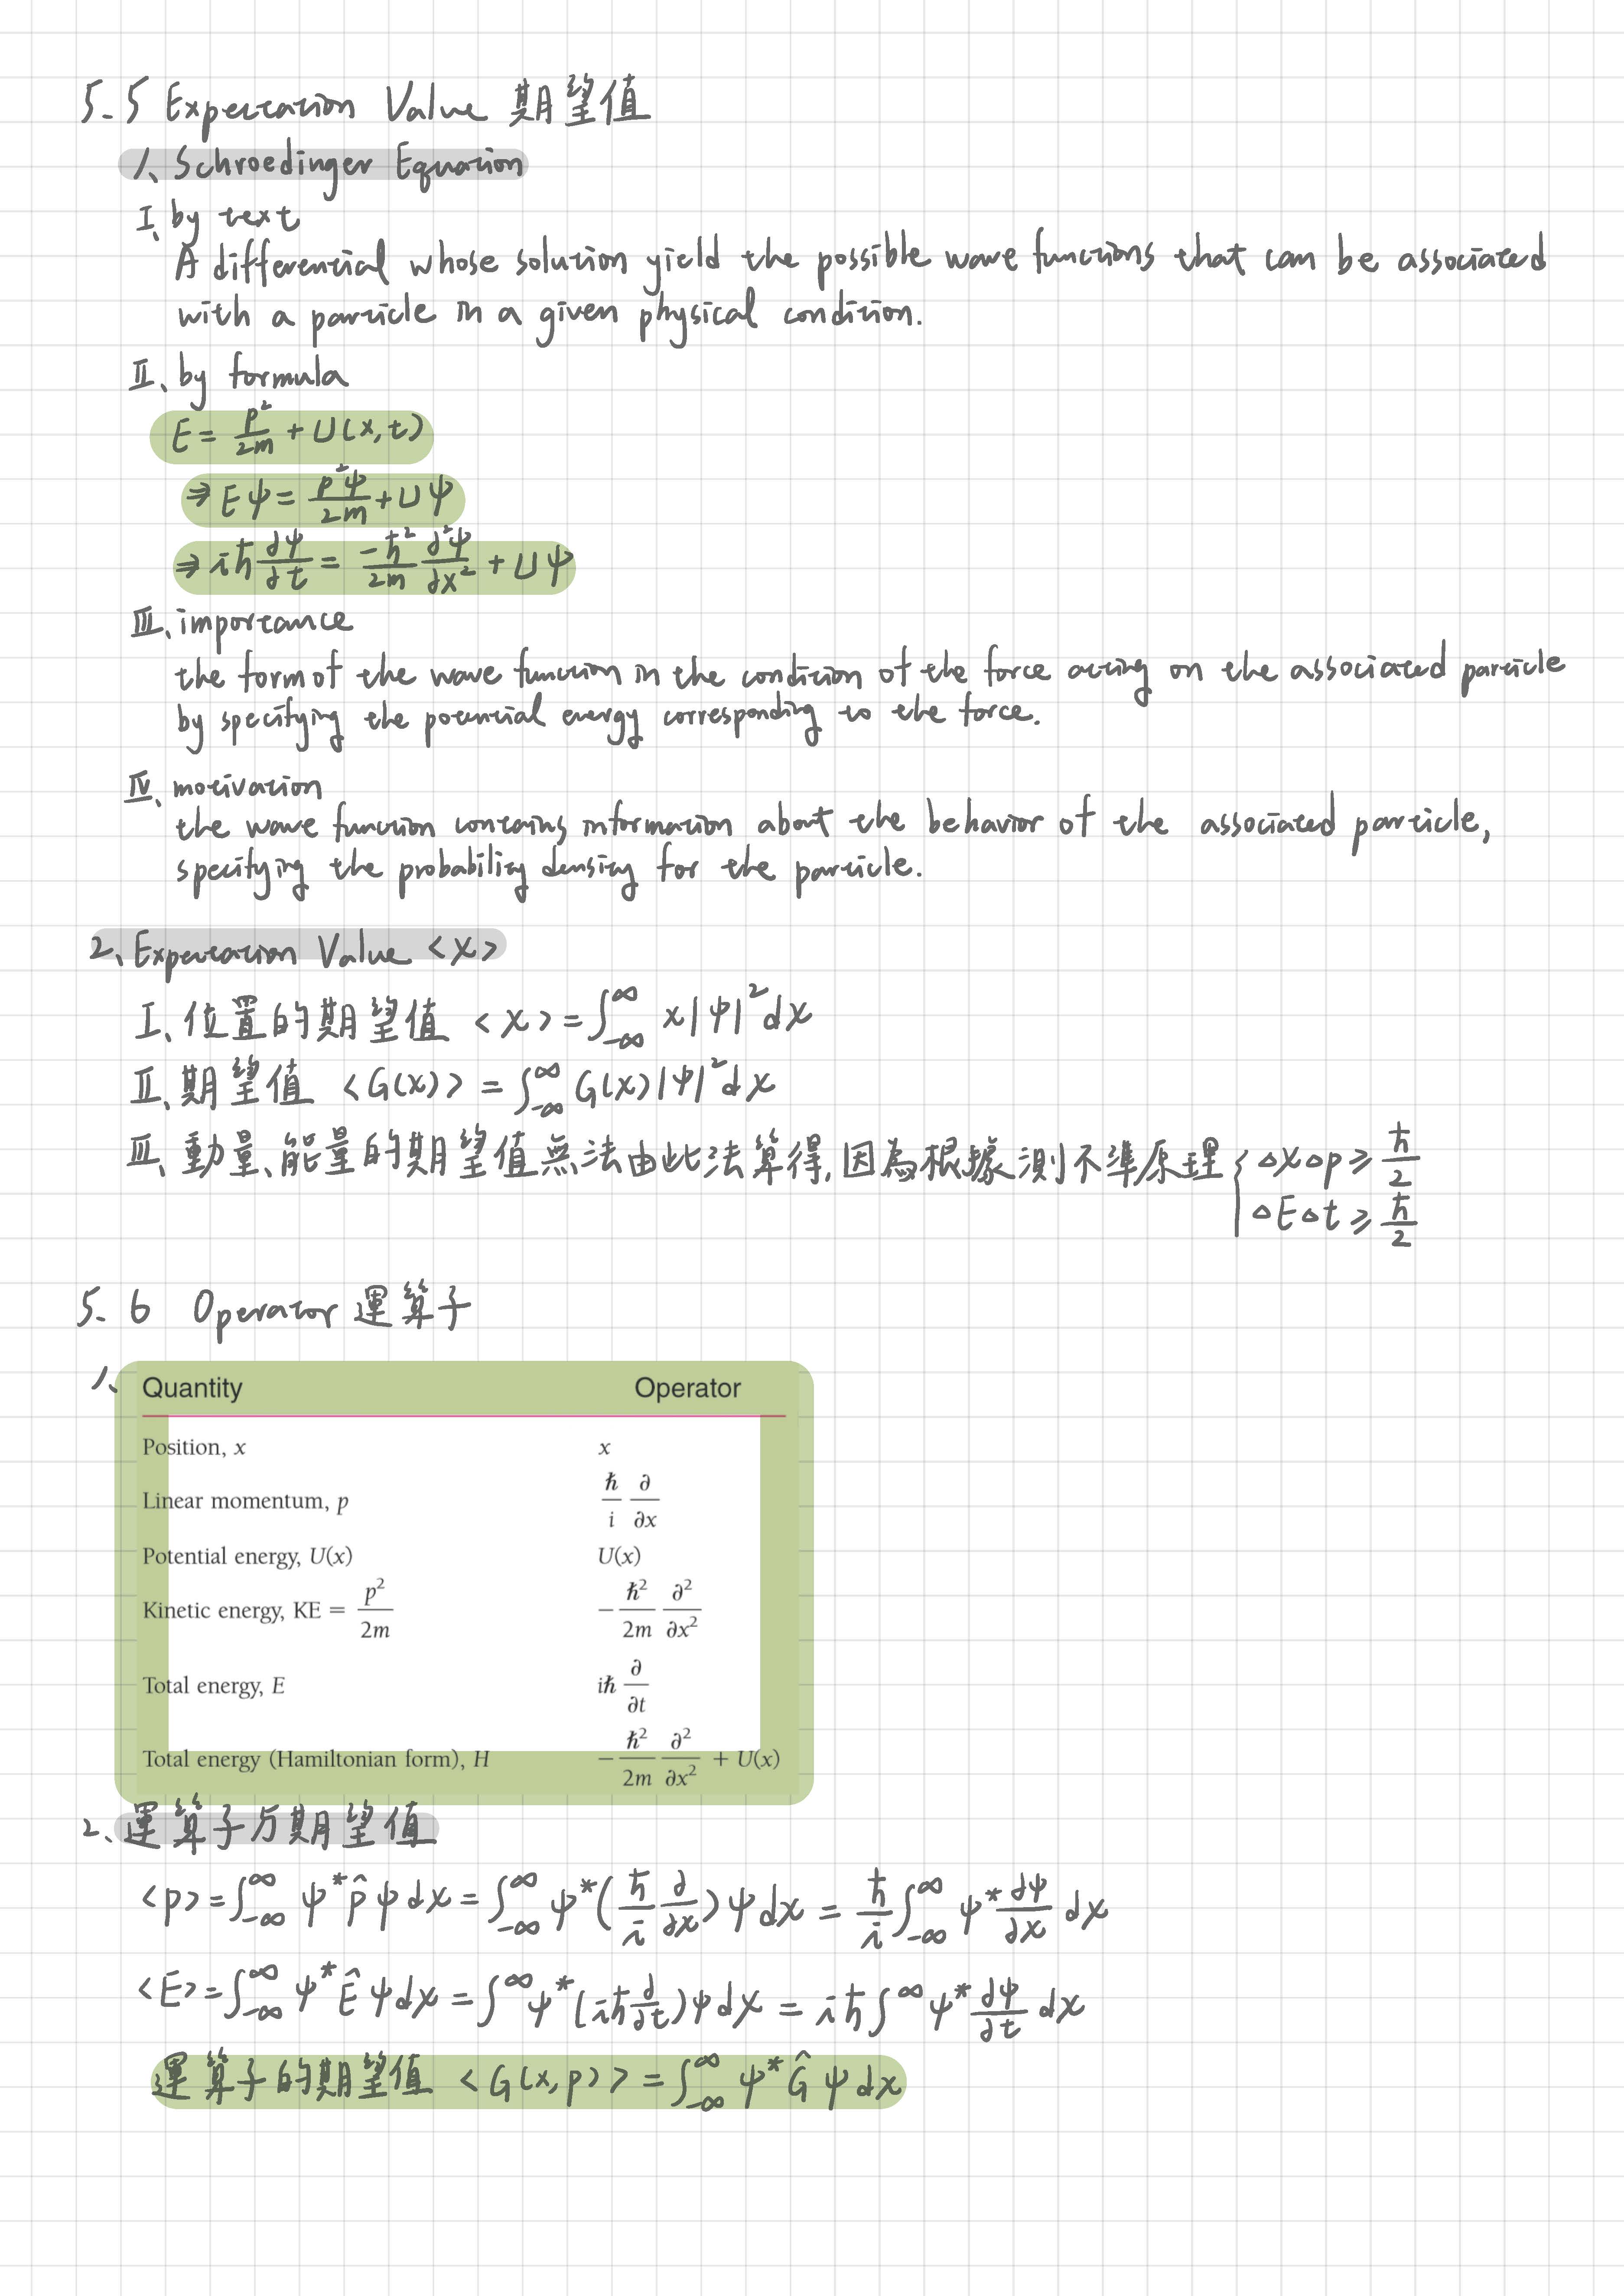 5-5 Expectation Value 期望值
1、Schroedinger Equation
I、by text
A differential whose solution yield the possible wave functions that can be associated
with a particle in a given physical condition.
II、by formula
E = p²/2m + U(x,t)
⇒ Eψ = p²ψ/2m + Uψ
⇒ iℏ ∂ψ/∂t = -ℏ²/2m ∂²ψ/∂x² + Uψ
III、importance
the form of the wave function in the condition of the force acting on the associated particle
by specifying the potential energy corresponding to the force.
IV、motivation
the wave function contains information about the behavior of the associated particle,
specifying the probability density for the particle.
2、Expectation Value <x>
I、位置的期望值 <x> = ∫_{-∞}^{∞} x|ψ|²dx
II、期望值 <G(x)> = ∫_{-∞}^{∞} G(x)|ψ|²dx
III、動量、能量的期望值無法由此法算得,因為根據測不準原理 { △x△p ≥ ℏ/2
△E△t ≥ ℏ/2
5-6 Operator 運算子
1、
Quantity Operator
Position, x x
Linear momentum, p ℏ/i ∂/∂x
Potential energy, U(x) U(x)
Kinetic energy, KE = p²/2m -ℏ²/2m ∂²/∂x²
Total energy, E iℏ ∂/∂t
Total energy (Hamiltonian form), H -ℏ²/2m ∂²/∂x² + U(x)
2、運算子与期望值
<p> = ∫_{-∞}^{∞} ψ* p̂ ψ dx = ∫_{-∞}^{∞} ψ*(ℏ/i ∂/∂x)ψ dx = ℏ/i ∫_{-∞}^{∞} ψ* ∂ψ/∂x dx
<E> = ∫_{-∞}^{∞} ψ* Ê ψ dx = ∫^{∞} ψ*(iℏ ∂/∂t)ψ dx = iℏ ∫^{∞} ψ* ∂ψ/∂t dx
運算子的期望值 <G(x,p)> = ∫_{-∞}^{∞} ψ* Ĝ ψ dx